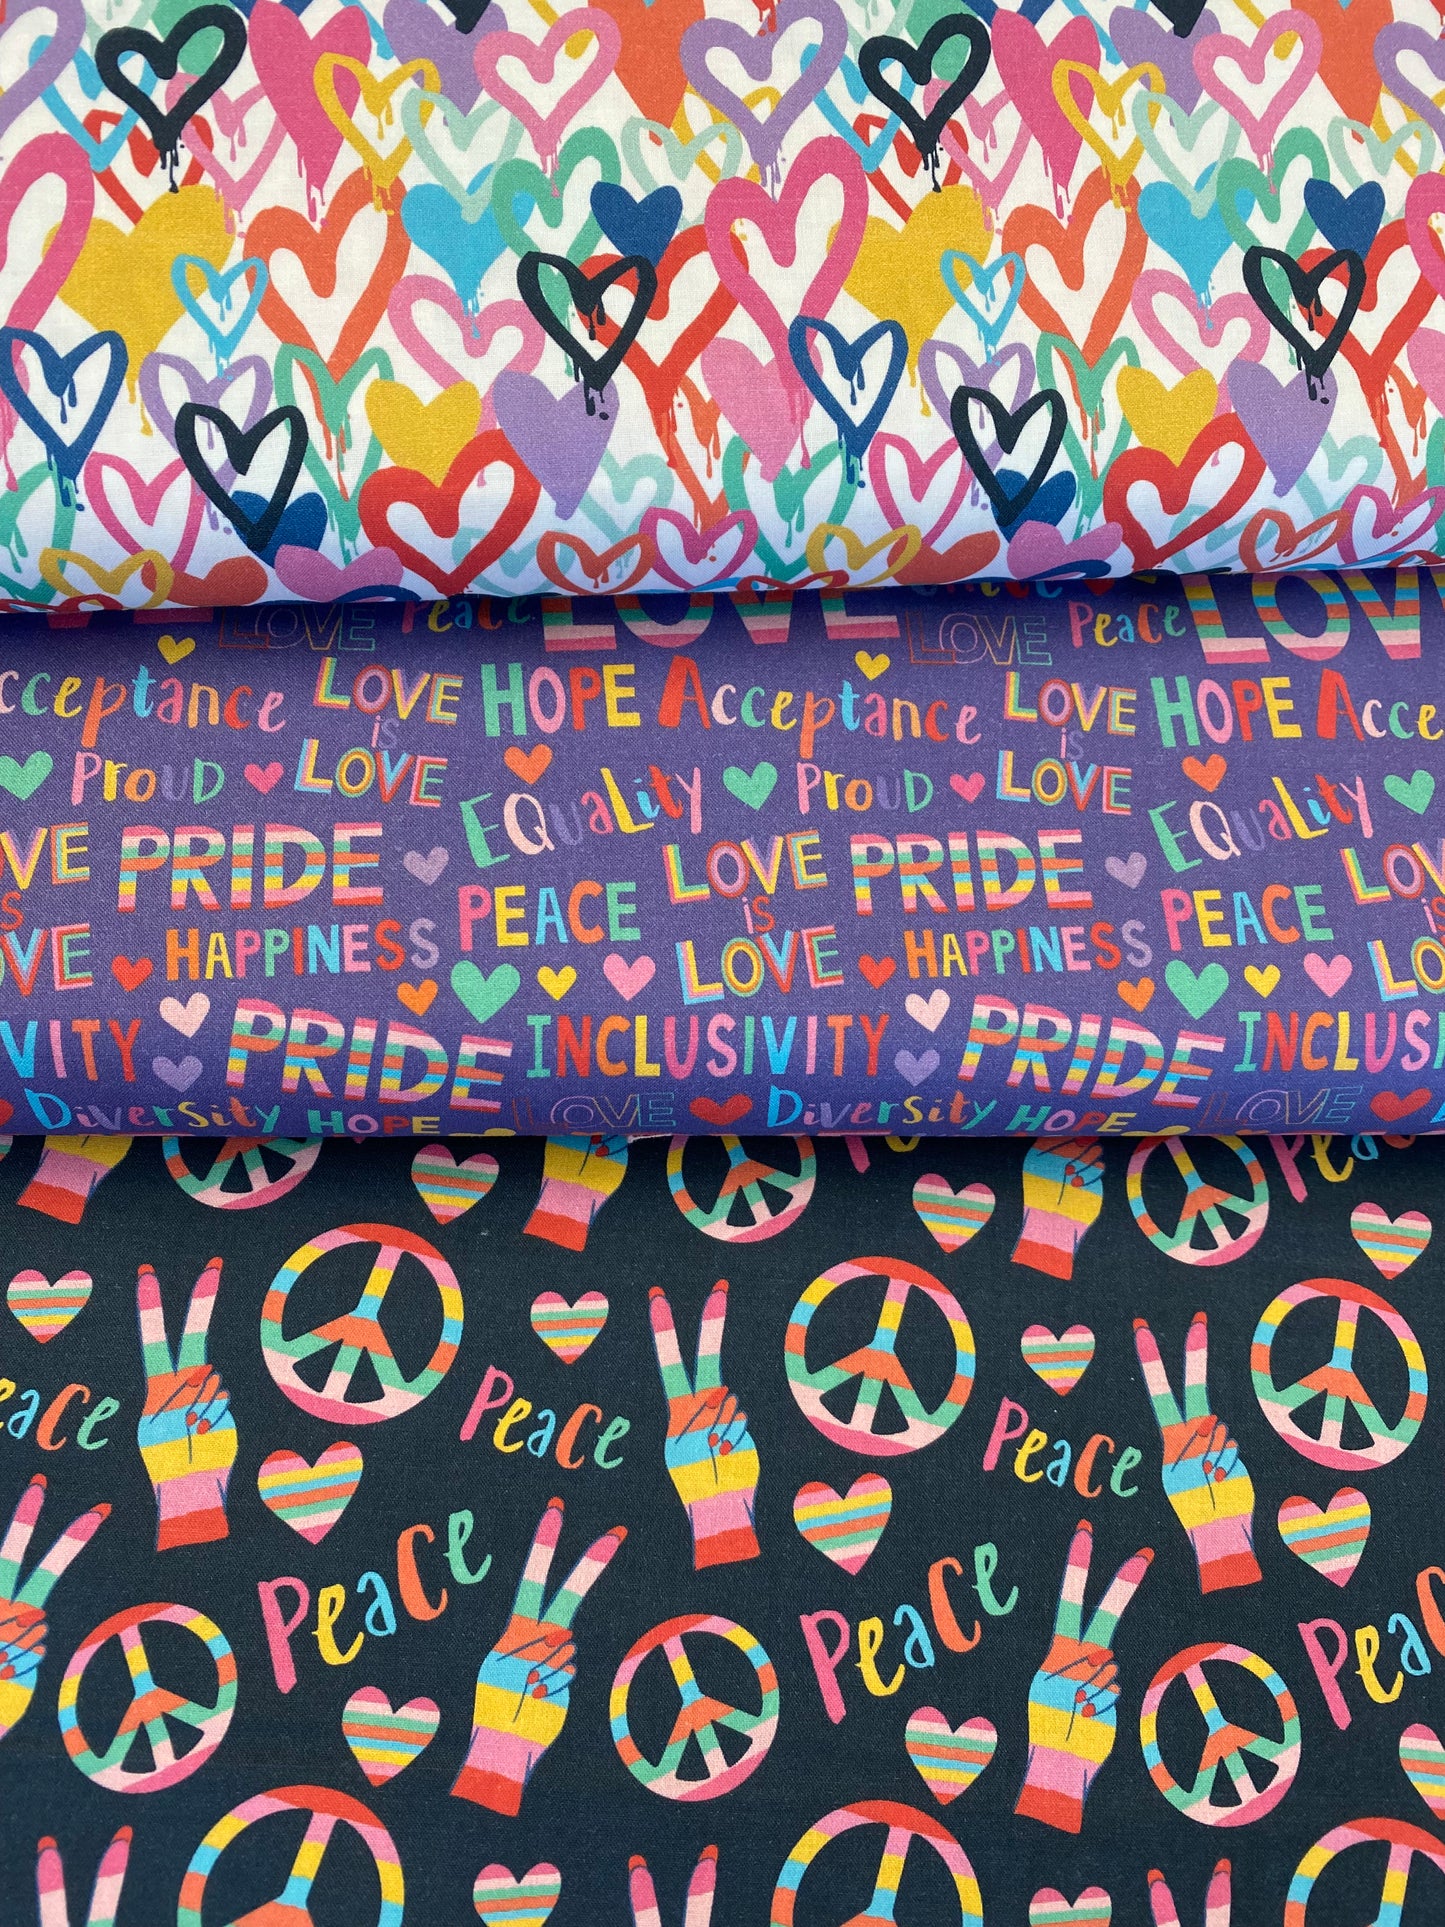 LOVE Peace LOVE Unite LOVE Peace LOVE
Acceptance LOVE is LOVE HOPE Acceptance LOVE is LOVE HOPE Acce
Proud EQuaLity Proud EQuaLity
LOVE is LOVE PRIDE PEACE LOVE is LOVE PRIDE PEACE LOVE
HAPPINESS HAPPINESS
VITY PRIDE INCLUSIVITY PRIDE INCLUSI
DiversitY HOPE LOVE DiversitY HOPE LOVE
Peace Peace
Peace Peace Peace
Peace Peace Peace